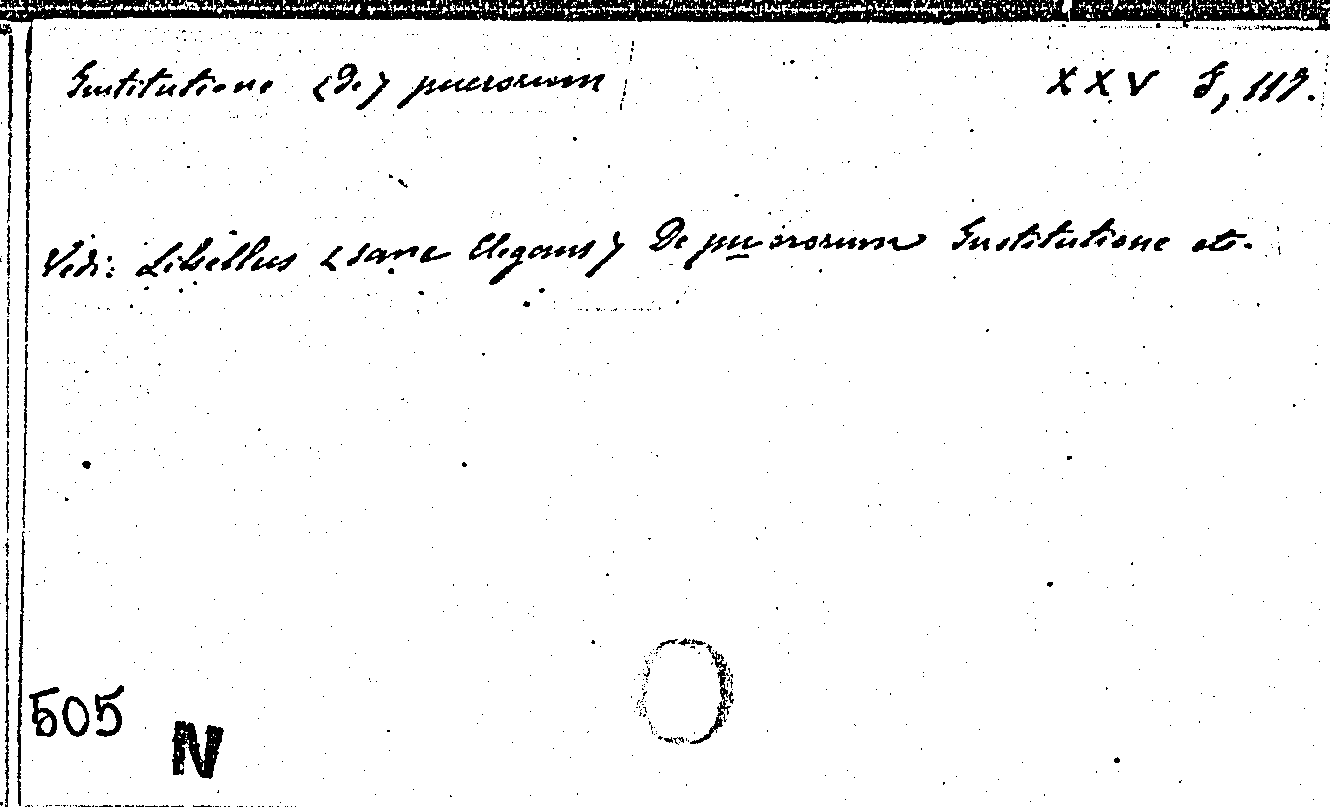 Institutione (De) puerorum XXV F, 117.
Vedi: Libellus (sane Elegans) De puerorum Institutione etc.
505 N